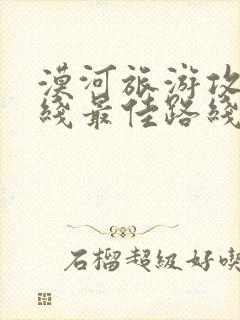 漠河旅游攻
线最佳路线
石榴超级好喫